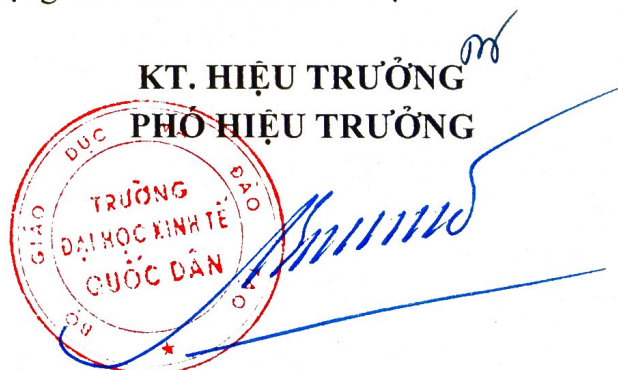 KT. HIỆU TRƯỞNG
PHÓ HIỆU TRƯỞNG
BỘ GIÁO DỤC VÀ ĐÀO TẠO
TRƯỜNG
ĐẠI HỌC KINH TẾ
QUỐC DÂN